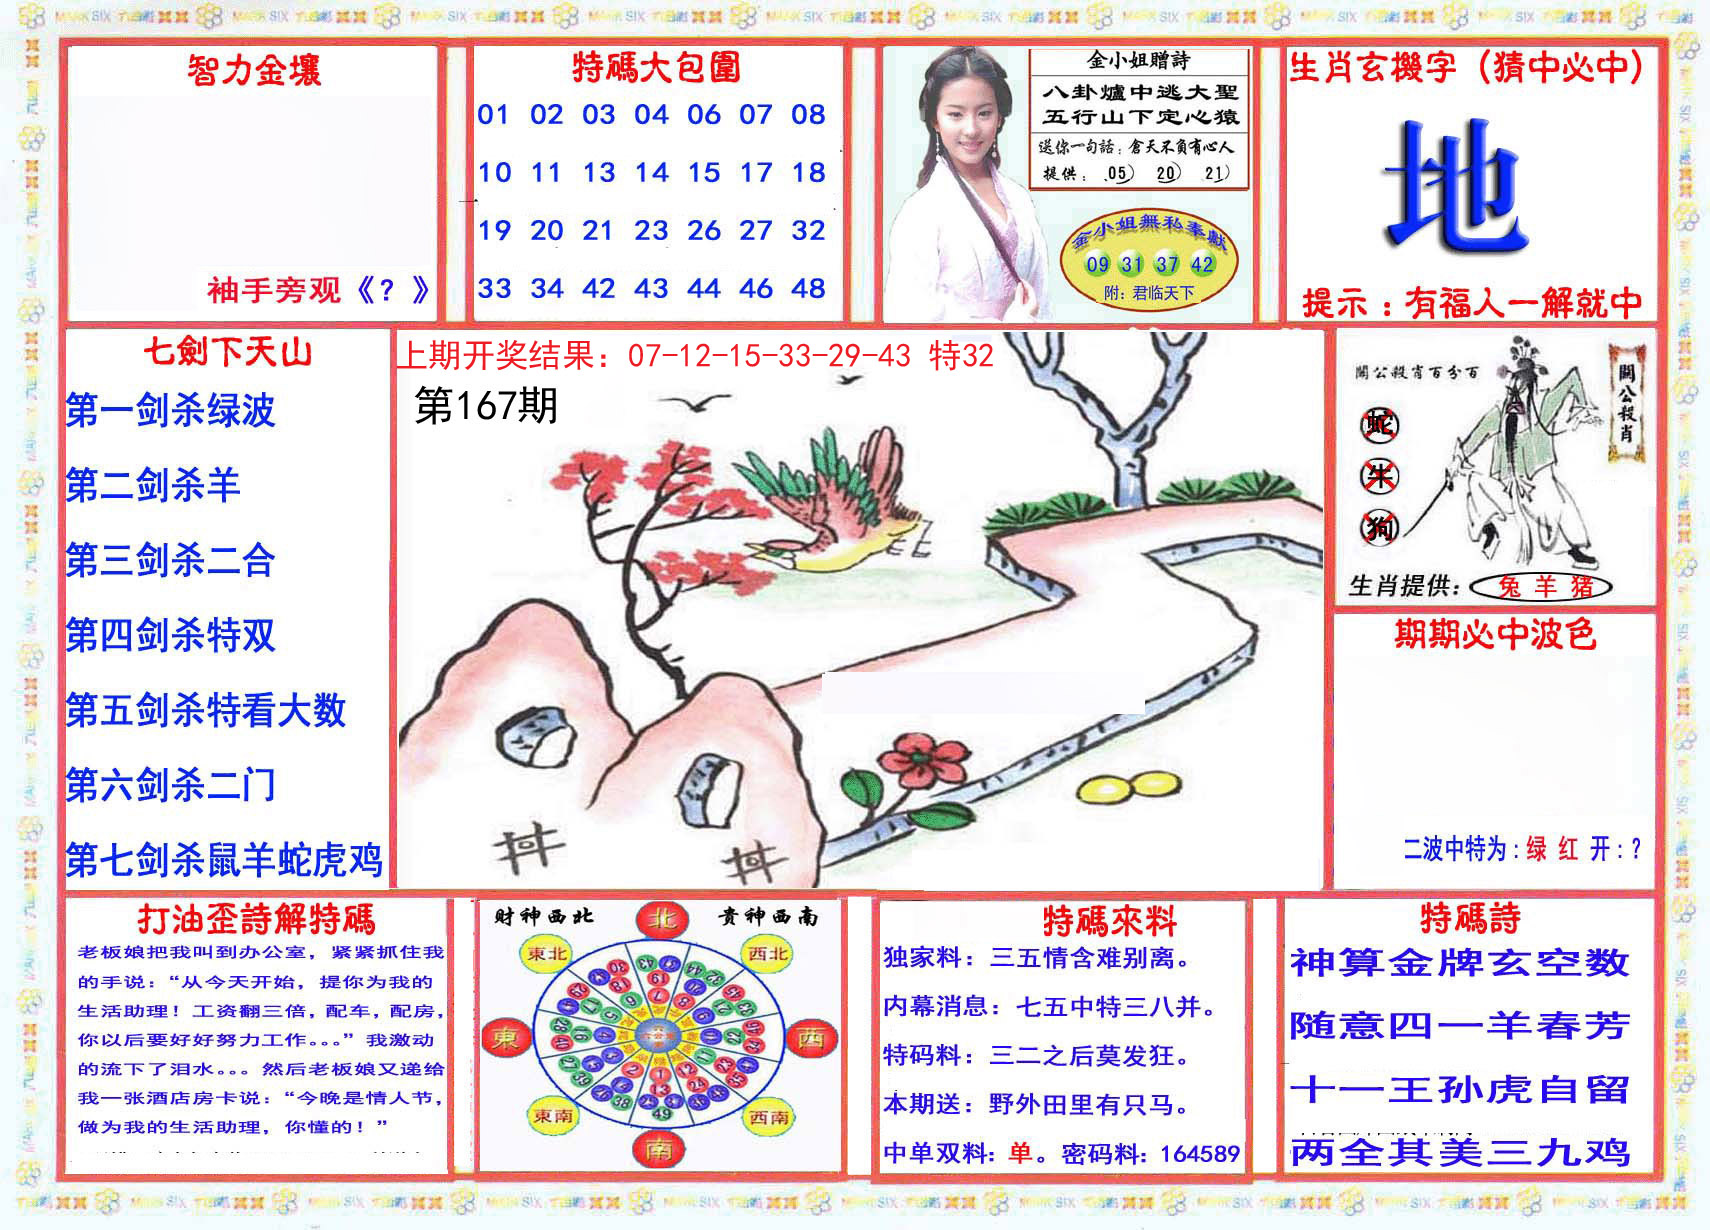 智力金壤
袖手旁观《？》
特碼大包圍
01 02 03 04 06 07 08
10 11 13 14 15 17 18
19 20 21 23 26 27 32
33 34 42 43 44 46 48
金小姐贈詩
八卦爐中逃大聖
五行山下定心猿
送你一句話：倉天不負有心人
提供：05） 20） 21）
金小姐無私奉獻
09 31 37 42
附：君临天下
生肖玄機字（猜中必中）
地
提示：有福人一解就中
七劍下天山
第一剑杀绿波
第二剑杀羊
第三剑杀二合
第四剑杀特双
第五剑杀特看大数
第六剑杀二门
第七剑杀鼠羊蛇虎鸡
上期开奖结果：07-12-15-33-29-43 特32
第167期
關公殺肖百分百
關公殺肖
蛇
牛
狗
生肖提供：兔 羊 猪
期期必中波色
二波中特为：绿 红 开：？
打油歪詩解特碼
老板娘把我叫到办公室，紧紧抓住我
的手说：“从今天开始，提你为我的
生活助理！工资翻三倍，配车，配房，
你以后要好好努力工作。。。”我激动
的流下了泪水。。。然后老板娘又递给
我一张酒店房卡说：“今晚是情人节，
做为我的生活助理，你懂的！”
財神西北
貴神西南
北
東北
西北
東
西
東南
西南
南
特碼來料
独家料：三五情含难别离。
内幕消息：七五中特三八并。
特码料：三二之后莫发狂。
本期送：野外田里有只马。
中单双料：单。密码料：164589
特碼詩
神算金牌玄空数
随意四一羊春芳
十一王孙虎自留
两全其美三九鸡